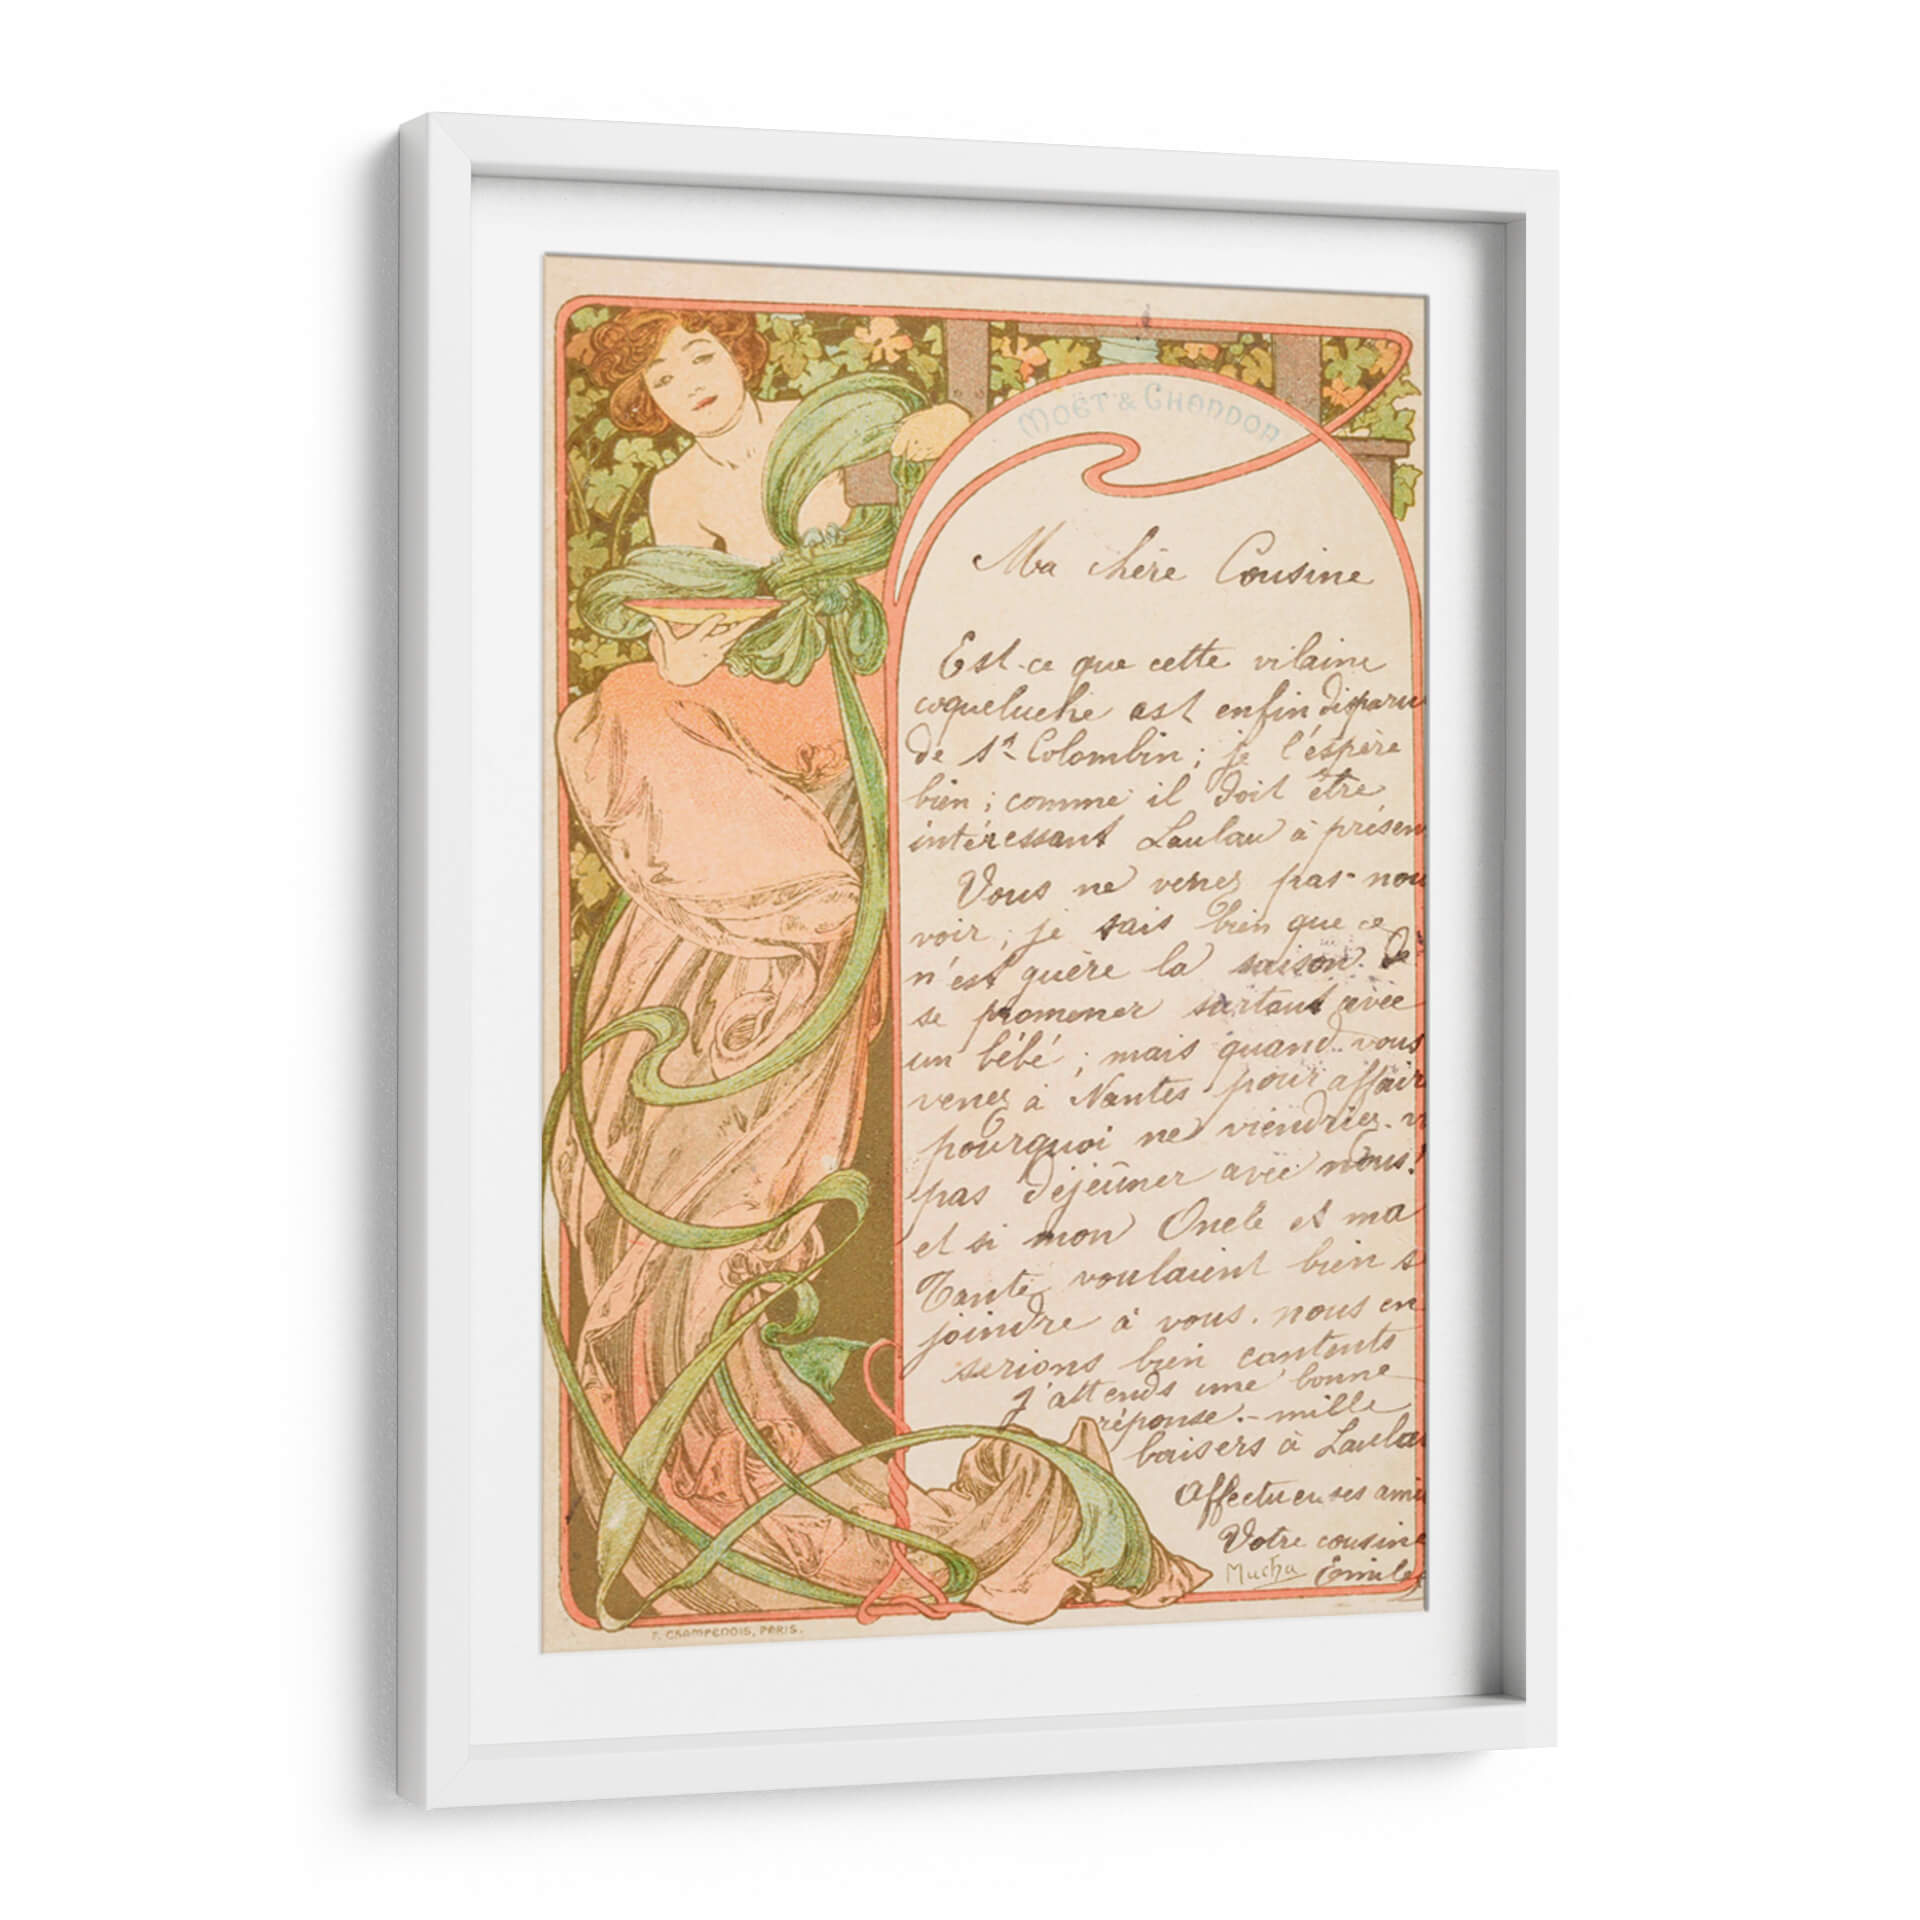 MOËT & CHANDON
Ma chère Cousine
Est-ce que cette vilaine
coqueluche est enfin disparu
de St Colombin ; je l'espère
bien ; comme il doit être
intéressant Laulau à présen
Vous ne venez pas nou
voir, je sais bien que ce
n'est guère la saison de
se promener surtout avec
un bébé ; mais quand vous
venez à Nantes pour affair
pourquoi ne viendriez-v
pas déjeûner avec nous!
et si mon Oncle et ma
Tante voulaient bien s
joindre à vous. nous en
serions bien contents
J'attends une bonne
réponse. - mille
baisers à Laulau
Affectueuses ami
Votre cousine
Mucha Emile
F. CHAMPENOIS, PARIS.